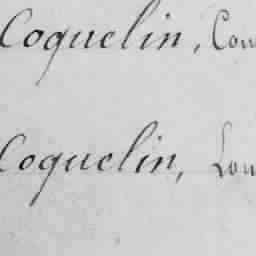 Coquelin, Con
Coquelin, Lou